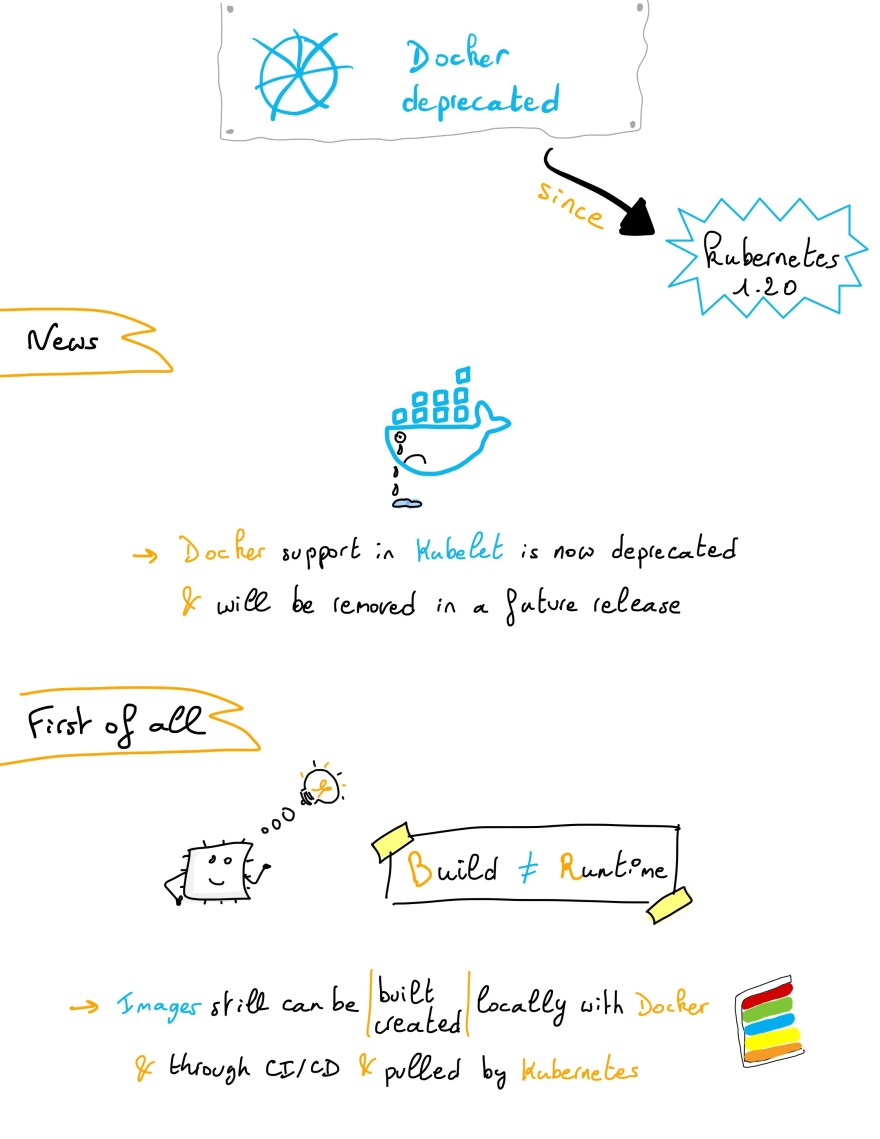 Docker
deprecated
since
Kubernetes
1.20
News
→ Docker support in Kubelet is now deprecated
& will be removed in a future release
First of all
Build ≠ Runtime
→ Images still can be | built created | locally with Docker
& through CI/CD & pulled by Kubernetes